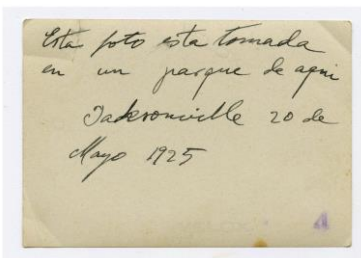 Esta foto esta tomada
en un parque de aqui
Jacksonville 20 de
Mayo 1925